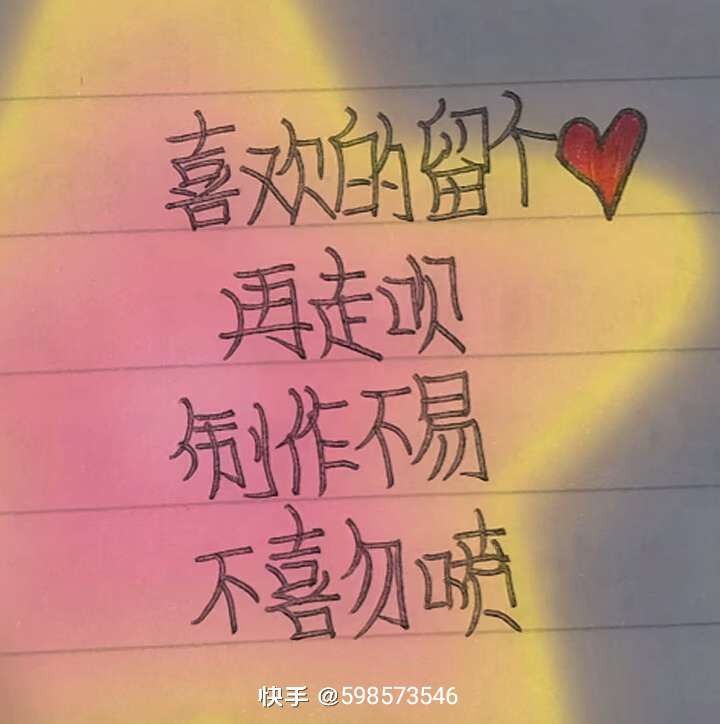 喜欢的留个❤
再走呗
制作不易
不喜勿喷
快手 @598573546